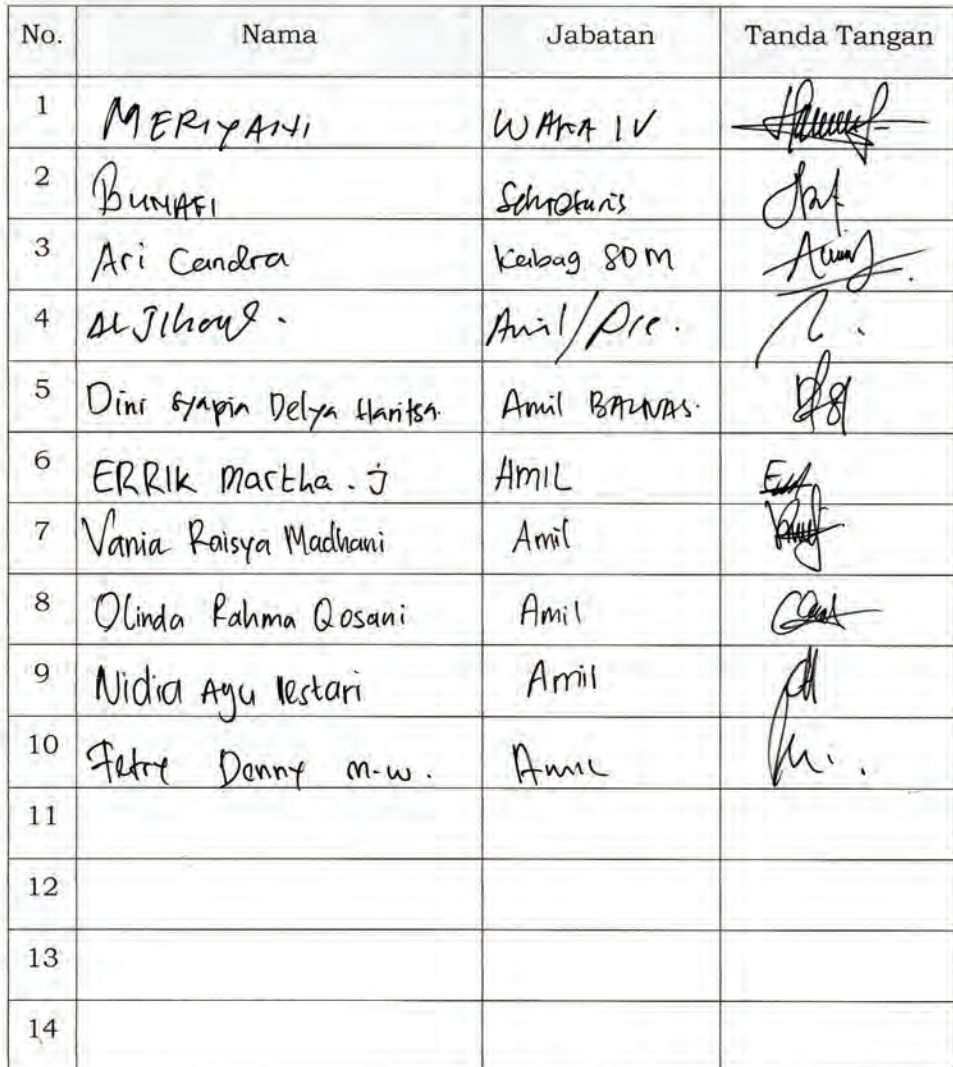 No. Nama Jabatan Tanda Tangan
1 MERIYANI WAKA IV
2 BUNAFI Sekretaris
3 Ari Candra Kabag SDM
4 Amil/
5 Dini Syapia Delya Haritsa. Amil BAZNAS.
6 ERRIK Martha. J AMIL
7 Vania Raisya Madhani Amil
8 Olinda Rahma Qosani Amil
9 Nidia Ayu lestari Amil
10 Denny M.W. Amil
11
12
13
14